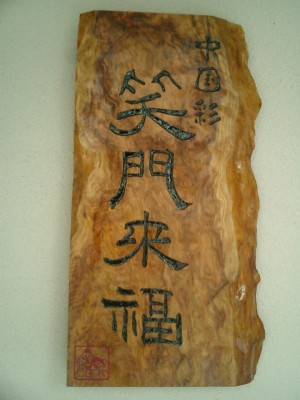 中国彩
笑門来福